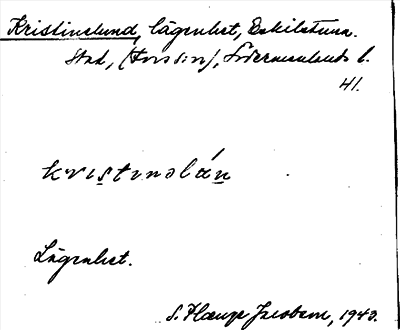 Kristinelund, lägenhet, Eskilstuna
Stad, (Fors sn), Södermanlands l.
41.
kristinəlán
Lägenhet.
S. Hauge Jacobsen, 1940.